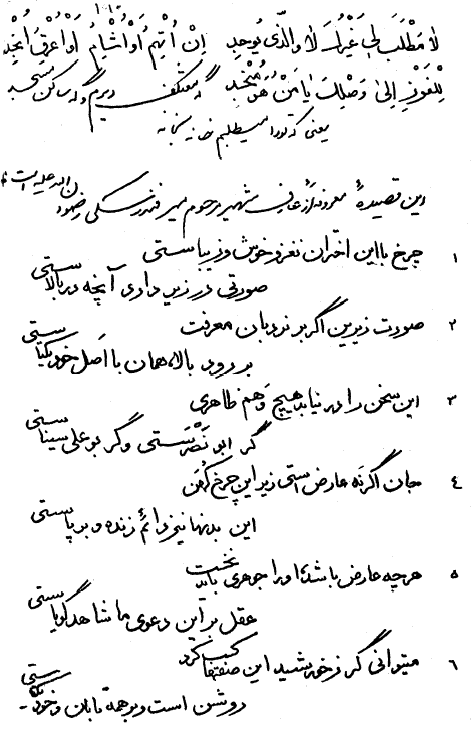 لا مطلب لی غیرک لا والذی یوجد إن أتهم أو أشأم أو أعرق أنجد
للفوز إلی وصلک یا من هو منجد گه معتکف دیرم و گه ساکن مسجد
یعنی که تورا میطلبم خانه بخانه
این قصیدهٔ معروفه از عارف شهیر مرحوم میر فندرسکی رضوان الله علیه است
۱ چرخ با این اختران نغز و خوش و زیباستی
صورتی در زیر دارد آنچه در بالاستی
۲ صورت زیرین اگر بر نردبان معرفت
بر رود بالا، همان با اصل خود یکتاستی
۳ این سخن را در نیابد هیچ وهم ظاهری
گر ابو نصرستی و گر بوعلی سیناستی
٤ جان اگر نه عارضستی زیر این چرخ کهن
این بدنها نیز دائم زنده و بر پاستی
۵ هر چه عارض باشد، او را جوهری باید نخست
عقل بر این دعوی ما شاهد گویاستی
٦ میتوانی گر ز خورشید این صفتها کسب کرد
روشن است و بر همه تابان و خود یکتاستی